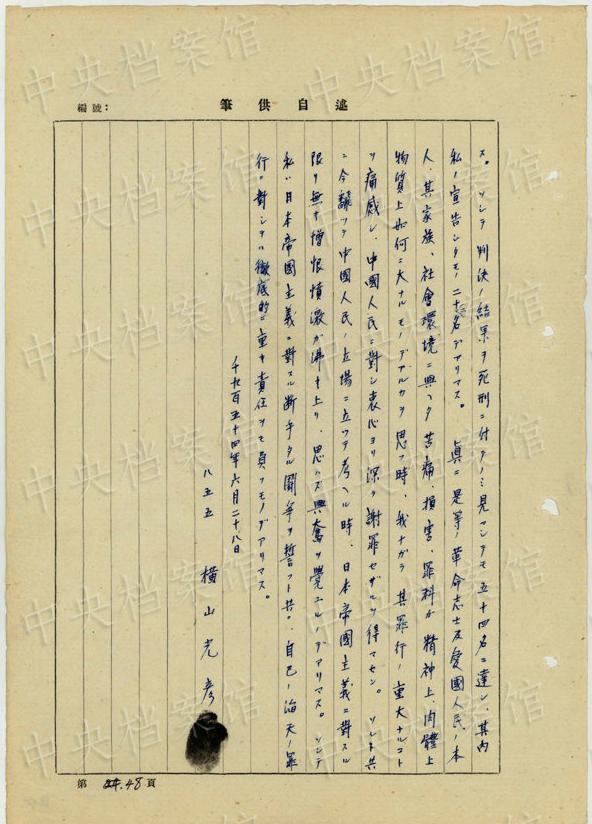 編號:
筆供自述
ス。ソシテ判決ノ結果ヲ死刑ニ付テノミ見マシテモ五十四名ニ達シ、其内
私ノ宣告シタモノ二十名デアリマス。 眞ニ是等ノ革命志士及愛國人民ノ本
人、其家族、社會環境ニ與ヘタ苦痛、損害、罪科ガ精神上、肉體上
物質上如何ニ大ナルモノデアルカヲ思フ時、我ナガラ其罪行ノ重大ナルコト
ヲ痛感シ、中國人民ニ對シ衷心ヨリ深ク謝罪セザルヲ得マセン。 ソレト共
ニ今飜ツテ中國人民ノ立場ニ立ツテ考ヘル時、日本帝國主義ニ對スル
限リ無キ憎恨憤激ガ沸キ上リ、思ハズ興奮ヲ覺エルノデアリマス。 ソシテ
私ハ日本帝國主義ニ對スル断乎タル鬪爭ヲ誓フト共ニ、自己ノ滔天ノ罪
行ニ對シテハ徹底的ニ重キ責任ヲモ負フモノデアリマス。
千九百五十四年六月二十八日
八五五 横山光彦
第 48 頁
中央档案馆